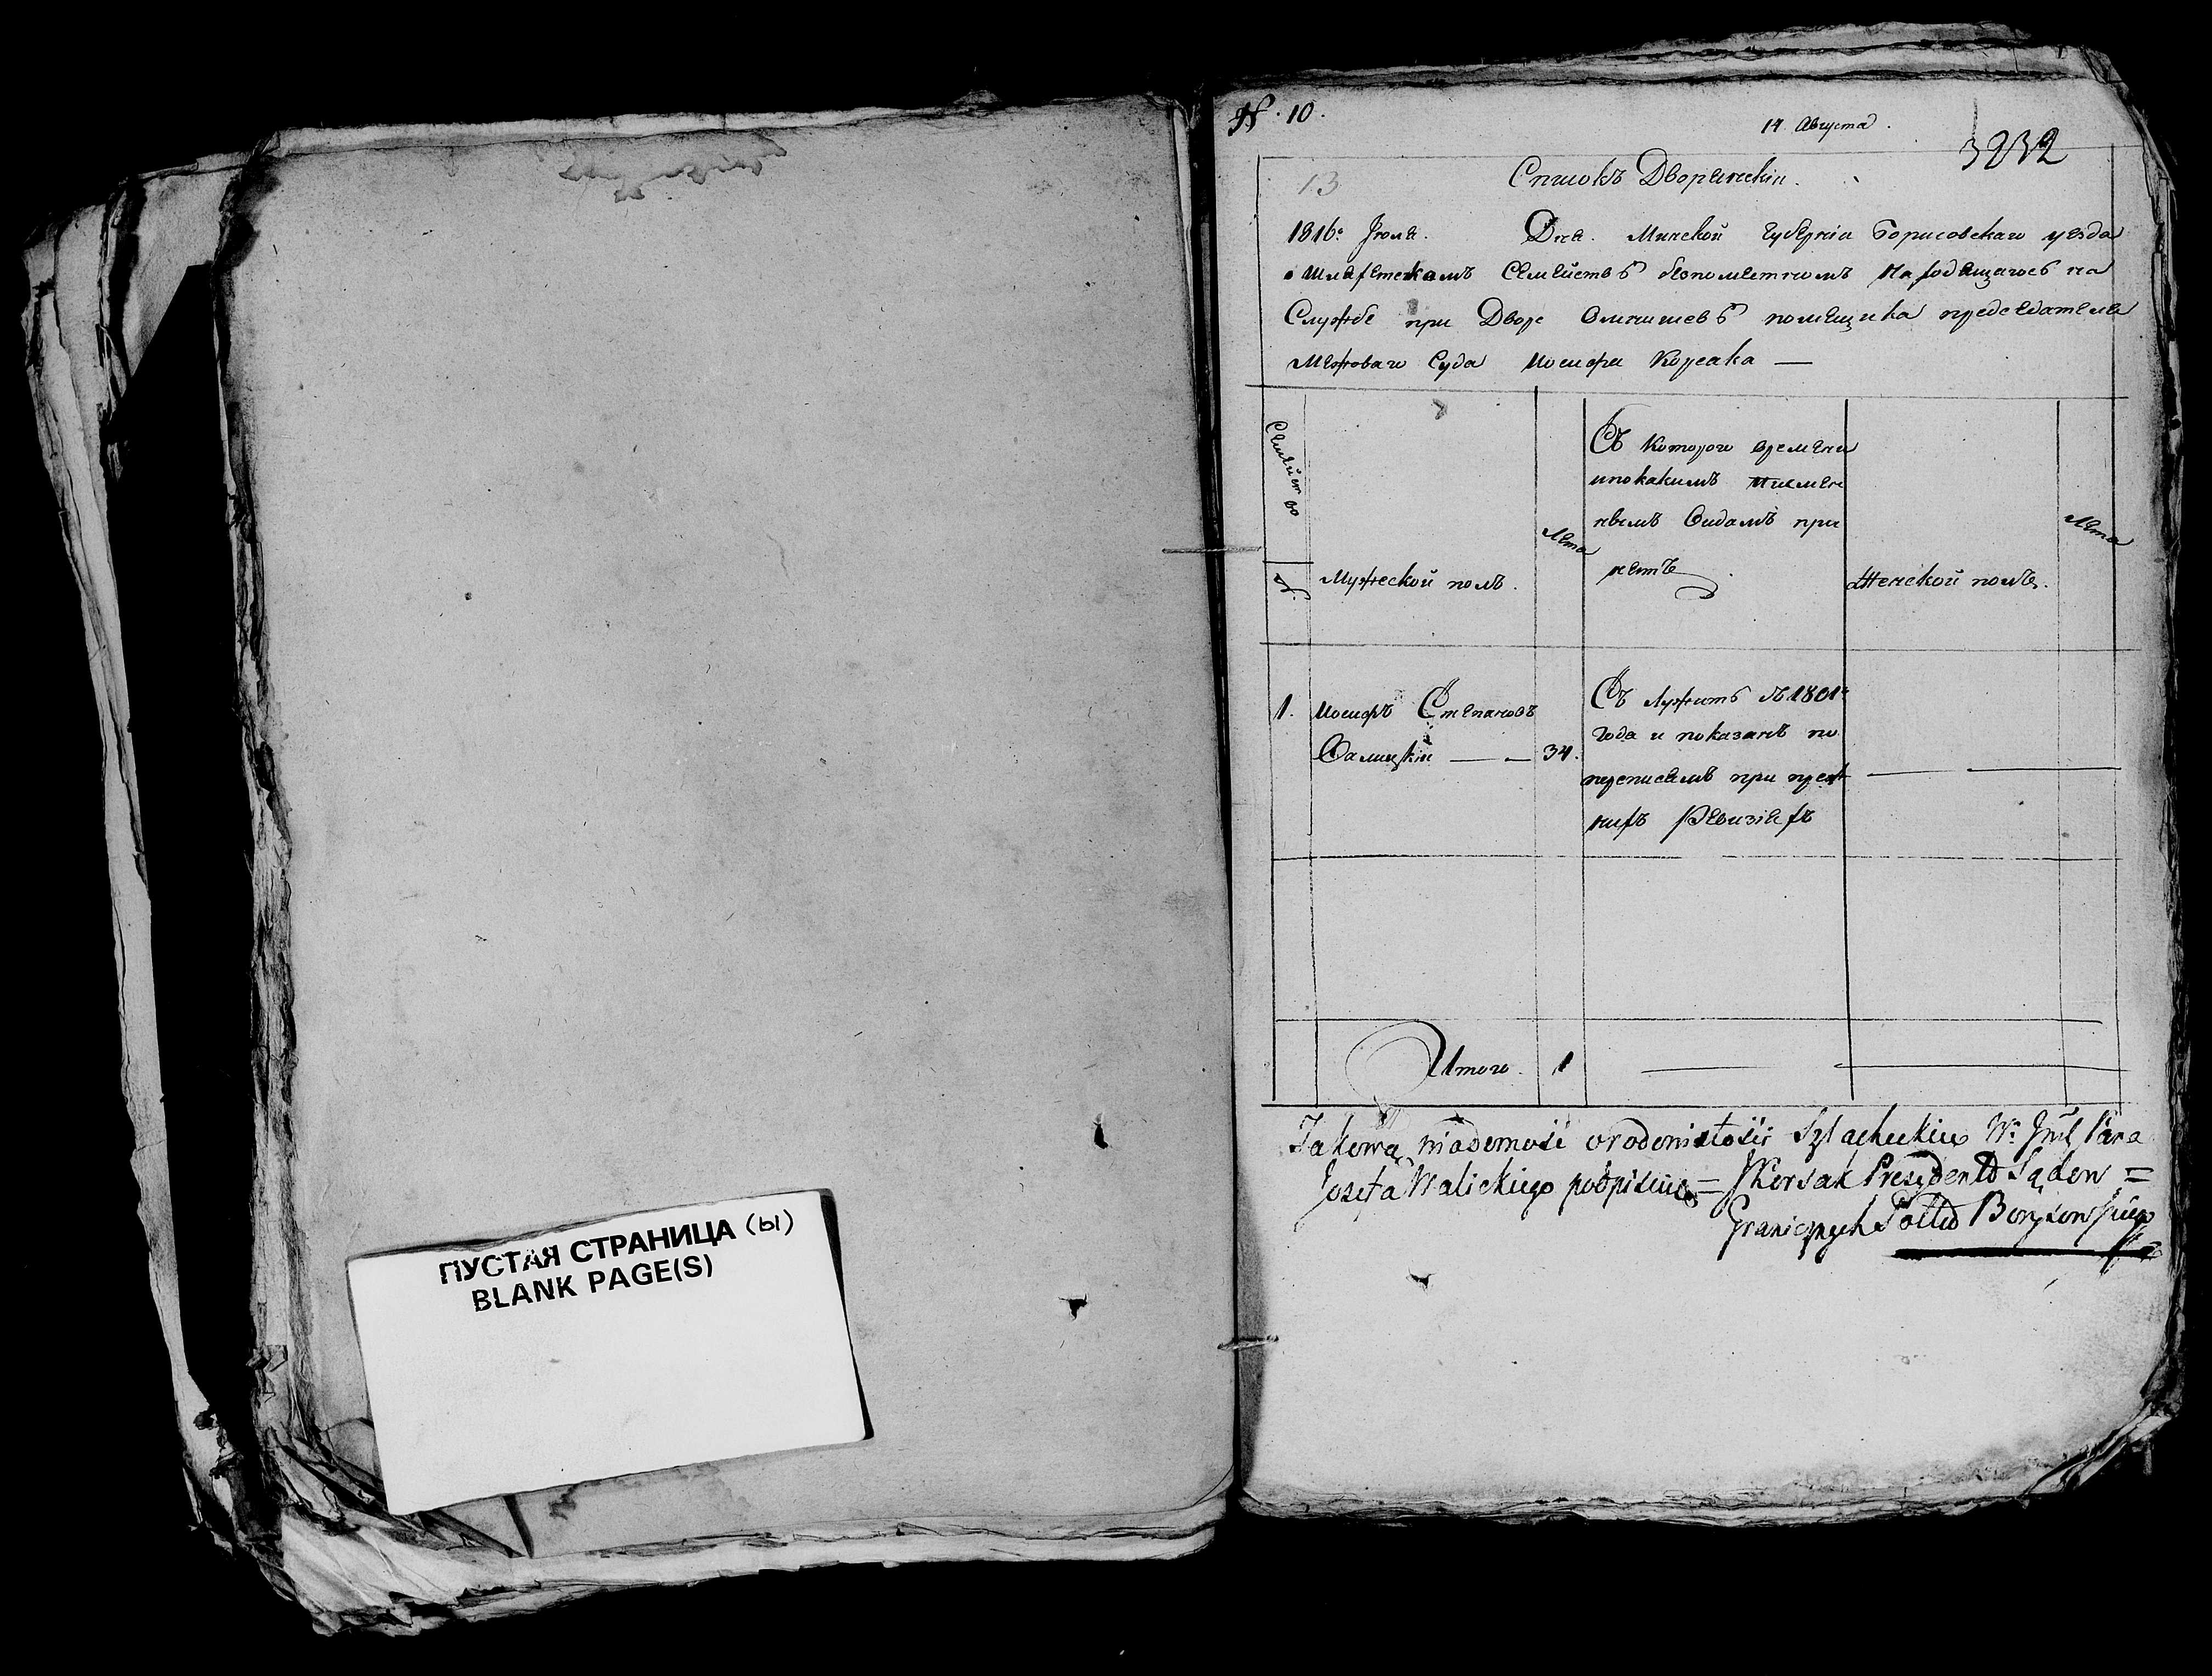 ПУСТАЯ СТРАНИЦА (ы)
BLANK PAGE(S)
№ 10.
14 Августа.
3232
13
Списокъ Дворянскіи.
1816го Іюля. Дня. Минской Губерніи Борисовскаго уезда
о Шляхетскомъ Семействѣ безпометномъ находящагосѣ на
Службе при Дворе помещика председателя
Межоваго Суда Иосифа Корсака —
Семейство
№.
Мужеской полъ.
Лета
Съ котораго времени
и по какимъ писмен
нымъ видамъ при
нетъ
Женской полъ.
Лета
1. Иосифъ Степановъ
Валицкій — — 34.
Съ лужитъ съ 1801го
года и показанъ по
переписямъ при преж
нихъ Ревизіяхъ
Итого. 1
Jakową wiadomość o rodowitości Szlacheckiey Wo Jmć Pana
Jozefa Walickiego podpisuię = JKorsak Prezydent Sądow =
Granicznych Pottu Borysowskiego